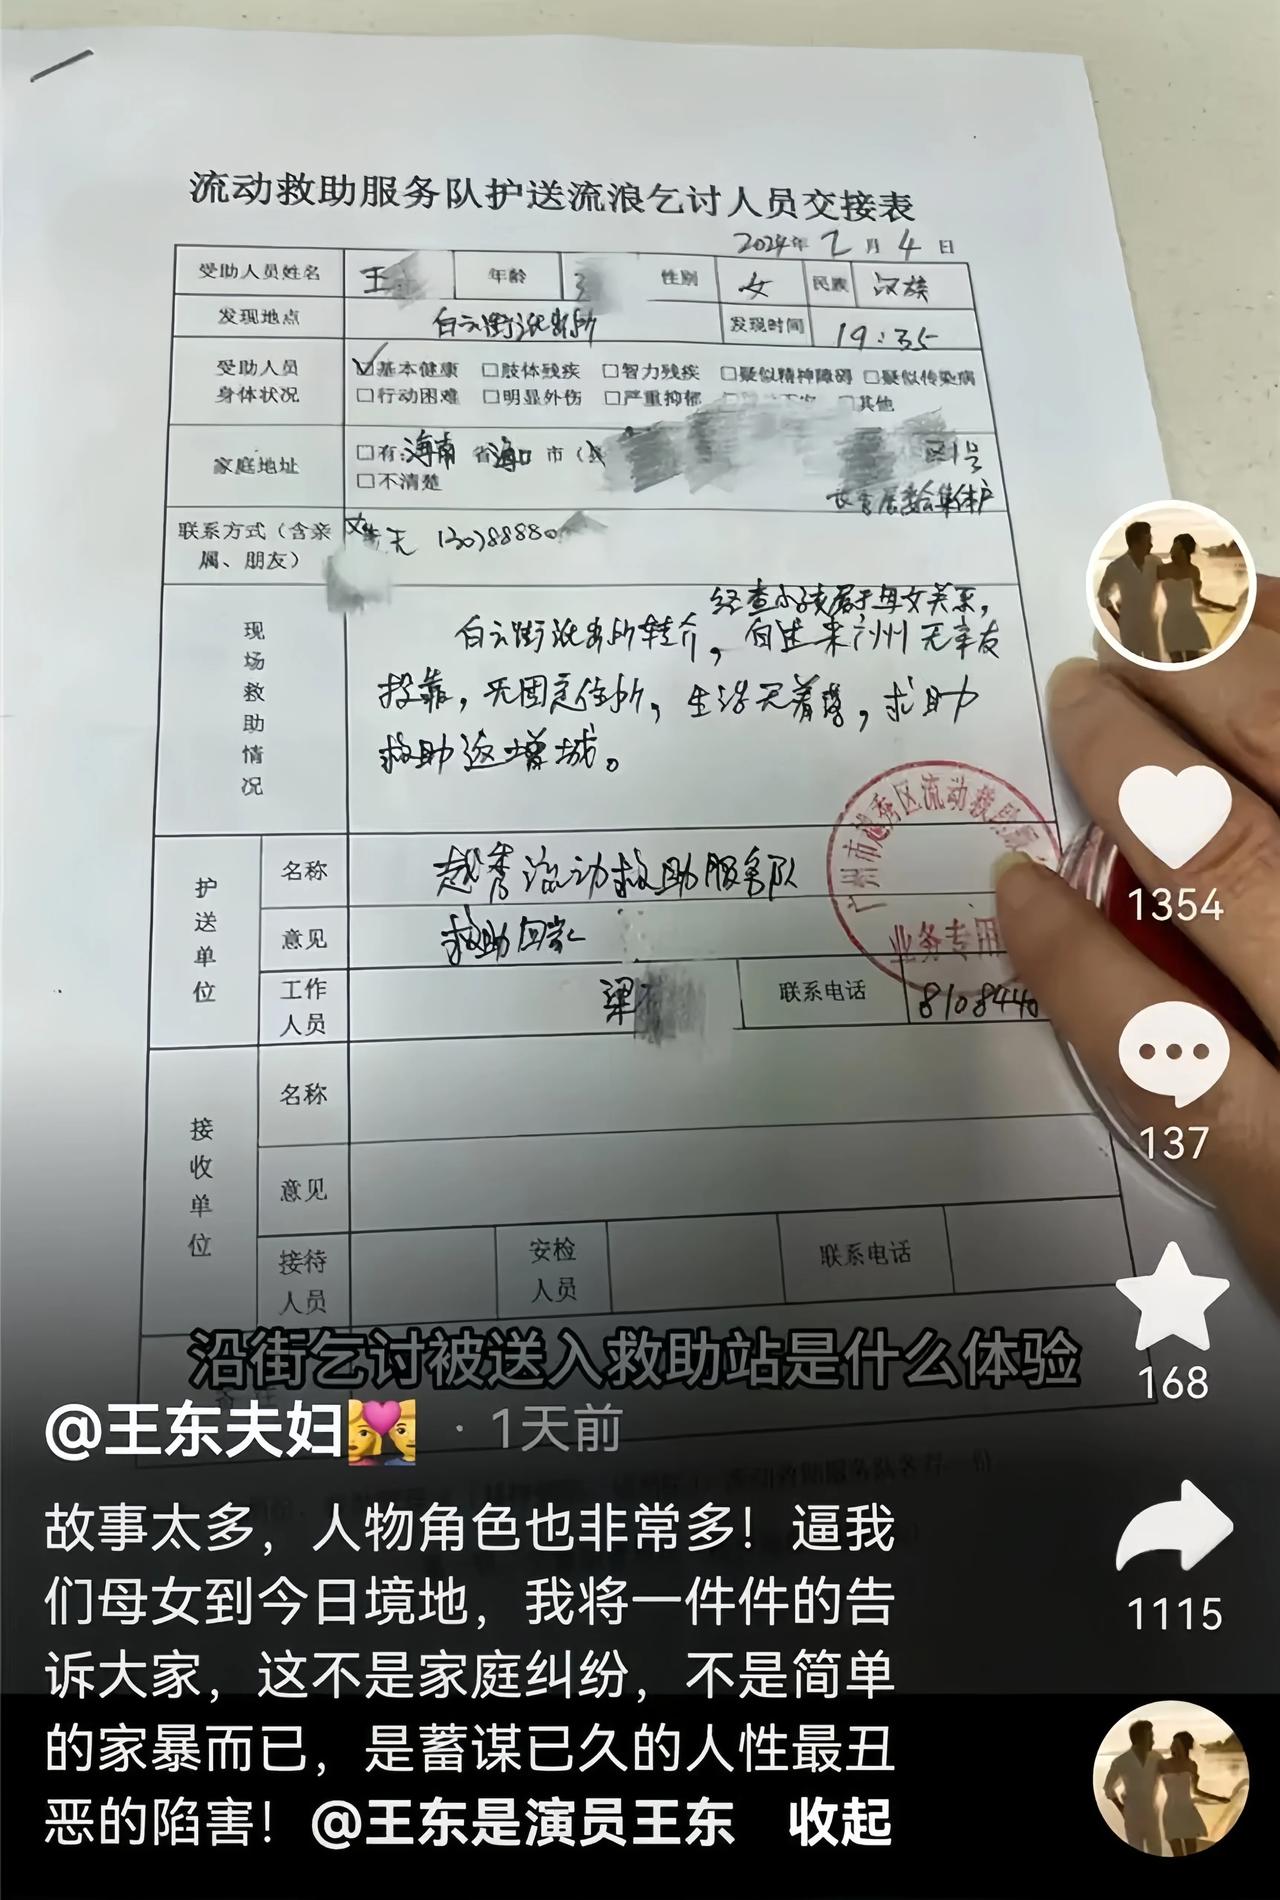 流动救助服务队护送流浪乞讨人员交接表
2024年2月4日
受助人员姓名 王 年龄 性别 女 民族 汉族
发现地点 白云街派出所 发现时间 19:35
受助人员身体状况
☑基本健康 □肢体残疾 □智力残疾 □疑似精神障碍 □疑似传染病
□行动困难 □明显外伤 □严重抑郁 □其他
家庭地址
□有:海南省海口市(县 区1号
□不清楚 居委会集体户
联系方式(含亲属、朋友) 无 13078888
现场救助情况
经查小孩属于母女关系,
白云街派出所转介,自述来广州无亲友
投靠,无固定住所,生活无着落,求助
救助返增城。
护送单位
名称 越秀流动救助服务队
意见 救助回家
工作人员 梁 联系电话 8108440
广州市越秀区流动救助
业务专用
接收单位
名称
意见
接待人员 安检人员 联系电话
沿街乞讨被送入救助站是什么体验
@王东夫妇 · 1天前
故事太多，人物角色也非常多！逼我
们母女到今日境地，我将一件件的告
诉大家，这不是家庭纠纷，不是简单
的家暴而已，是蓄谋已久的人性最丑
恶的陷害！@王东是演员王东 收起
1354
137
168
1115